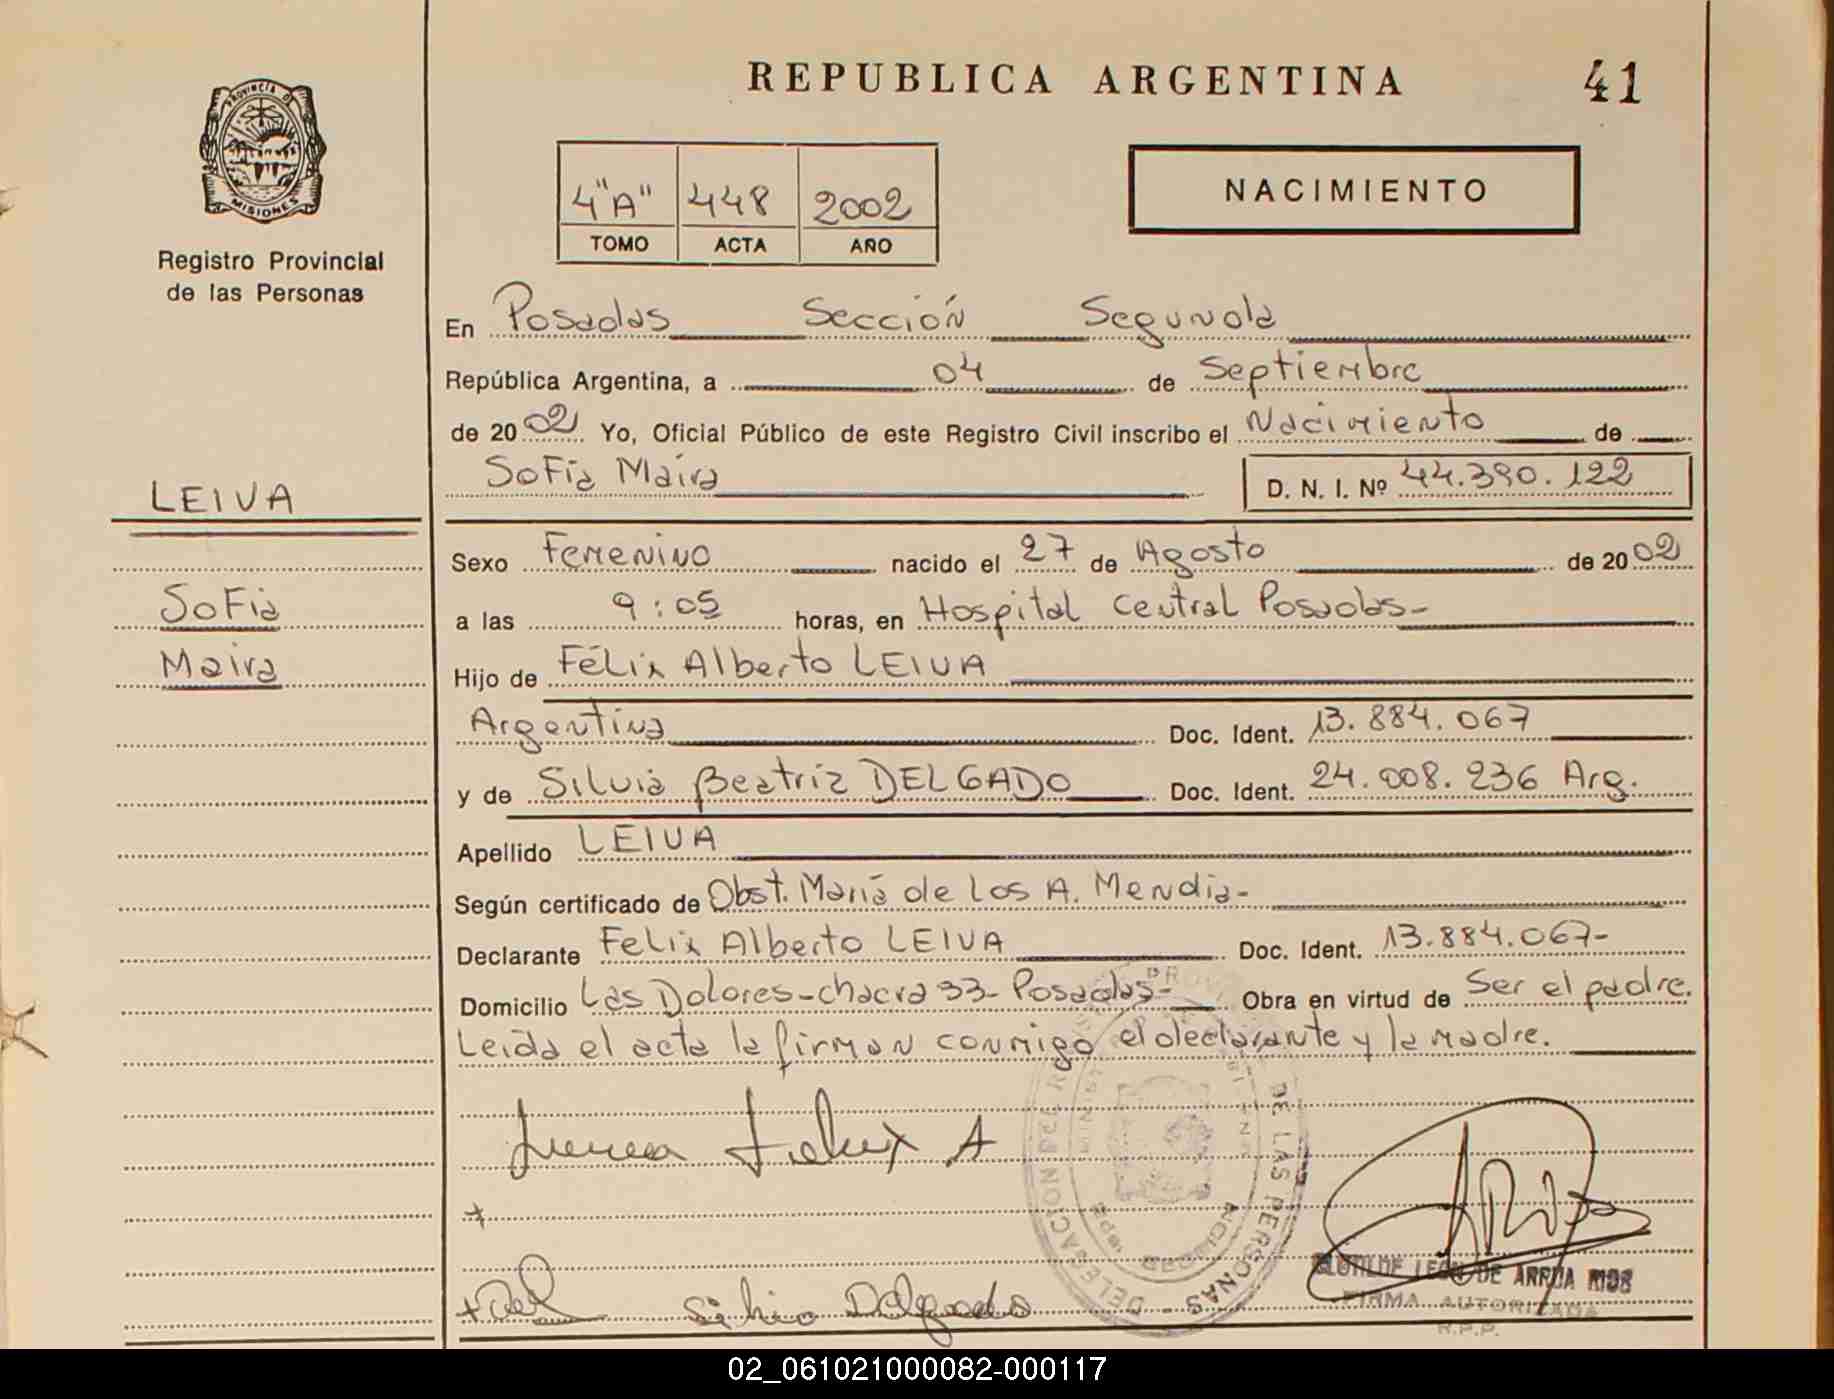 REPUBLICA ARGENTINA 41
PROVINCIA DE MISIONES
Registro Provincial
de las Personas
4"A" 448 2002
TOMO ACTA AÑO
NACIMIENTO
En Posadas Sección Segunda
República Argentina, a 04 de Septiembre
de 2002 Yo, Oficial Público de este Registro Civil inscribo el Nacimiento de
Sofia Maira D. N. I. Nº 44.390.122
LEIVA
Sofia
Maira
Sexo Femenino nacido el 27 de Agosto de 2002
a las 9:05 horas, en Hospital Central Posadas-
Hijo de Félix Alberto LEIVA
Argentina Doc. Ident. 13.884.067
y de Silvia Beatriz DELGADO Doc. Ident. 24.008.236 Arg.
Apellido LEIVA
Según certificado de Obst. María de Los A. Mendia-
Declarante Felix Alberto LEIVA Doc. Ident. 13.884.067-
Domicilio Las Dolores-chacra 33- Posadas- Obra en virtud de Ser el padre.
Leida el acta la firman conmigo el declarante y la madre.
DE LAS PERSONAS - DELEGACION
Silvia Delgado
CLOTILDE LEON DE ARRUA RIOS
FIRMA AUTORIZADA
R.P.P.
02_061021000082-000117